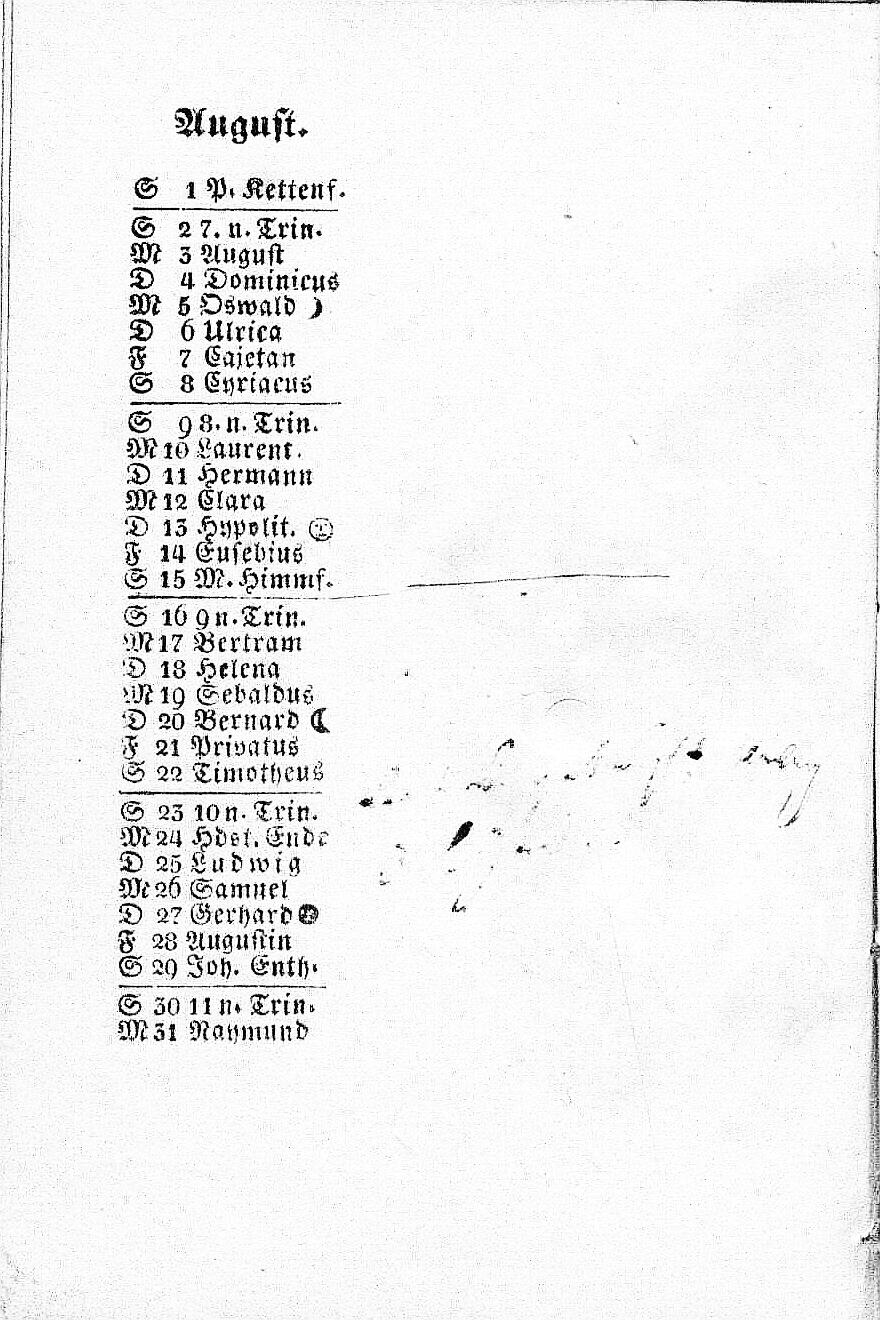 August.
S 1 P. Kettenf.
S 2 7. n. Trin.
M 3 August
D 4 Dominicus
M 5 Oswald ☽
D 6 Ulrica
F 7 Cajetan
S 8 Cyriacus
S 9 8. n. Trin.
M 10 Laurent.
D 11 Hermann
M 12 Clara
D 13 Hypolit.
F 14 Eusebius
S 15 M. Himmf.
S 16 9 n. Trin.
M 17 Bertram
D 18 Helena
M 19 Sebaldus
D 20 Bernard ☾
F 21 Privatus
S 22 Timotheus
S 23 10 n. Trin.
M 24 Hdst. Ende
D 25 Ludwig
M 26 Samuel
D 27 Gerhard
F 28 Augustin
S 29 Joh. Enth.
S 30 11 n. Trin.
M 31 Raymund